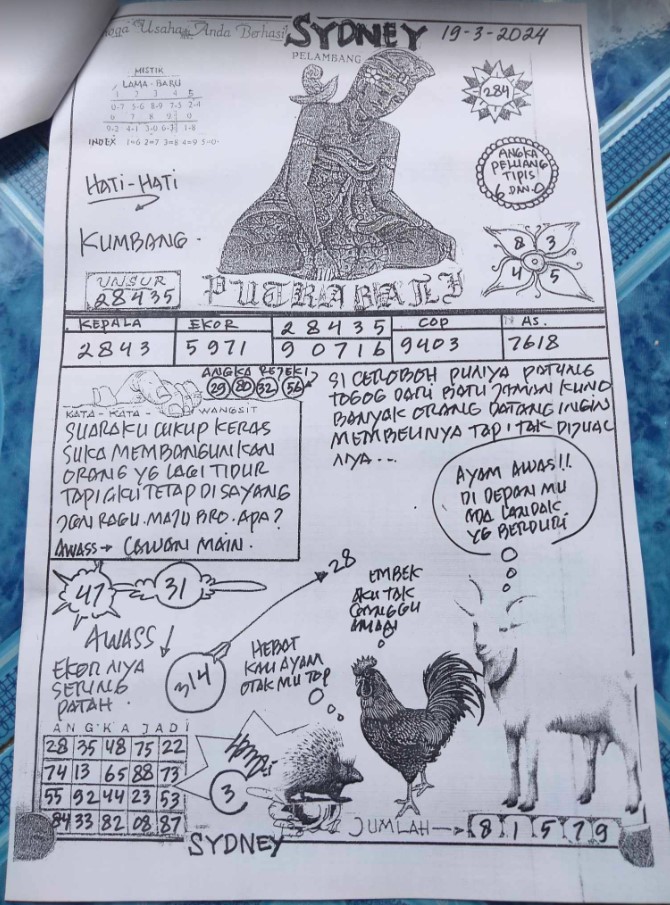 Usaha Anda Berhasil
SYDNEY 19-3-2024
PELAMBANG
MISTIK
LAMA - BARU
1 2 3 4 5
0-7 5-6 8-9 7-3 2-4
6 7 8 9 0
9-2 4-1 3-0 6-3 1-8
INDEX 1=6 2=7 3=8 4=9 5=0
284
ANGKA
PELUANG
TIPIS
6 DAN 0
HATI-HATI
KUMBANG
8 3
4 5
UNSUR
28435
PUTRA BALI
KEPALA EKOR 28435 COP AS.
2843 5971 90716 9403 7618
ANGKA REJEKI
29 80 32 56
KATA - KATA - WANGSIT
SUARAKU CUKUP KERAS
SUKA MEMBANGUNKAN
ORANG YG LAGI TIDUR
TAPI GKU TETAP DI SAYANG
JGN RAGU. MAJU BRO. APA?
AWASS → CAWAN MAIN.
SI CEROBOH PUNYA PATUNG
TOGOG DARI BATU JAMAN KUNO
BANYAK ORANG DATANG INGIN
MEMBELINYA TAPI TAK DIJUAL
NYA...
AYAM AWAS!!
DI DEPAN MU
ADA LANDAK
YG BERDURI
47 31 28
AWASS
EKOR NYA
SERING
PATAH.
314
EMBEK
AKU TAK
HEBAT
KAU AYAM
OTAK MU TOP
ANGKA JADI
28 35 48 75 22
74 13 65 88 73
55 92 44 23 53
84 33 82 08 87
3
JUMLAH → 8 1 5 7 9
SYDNEY